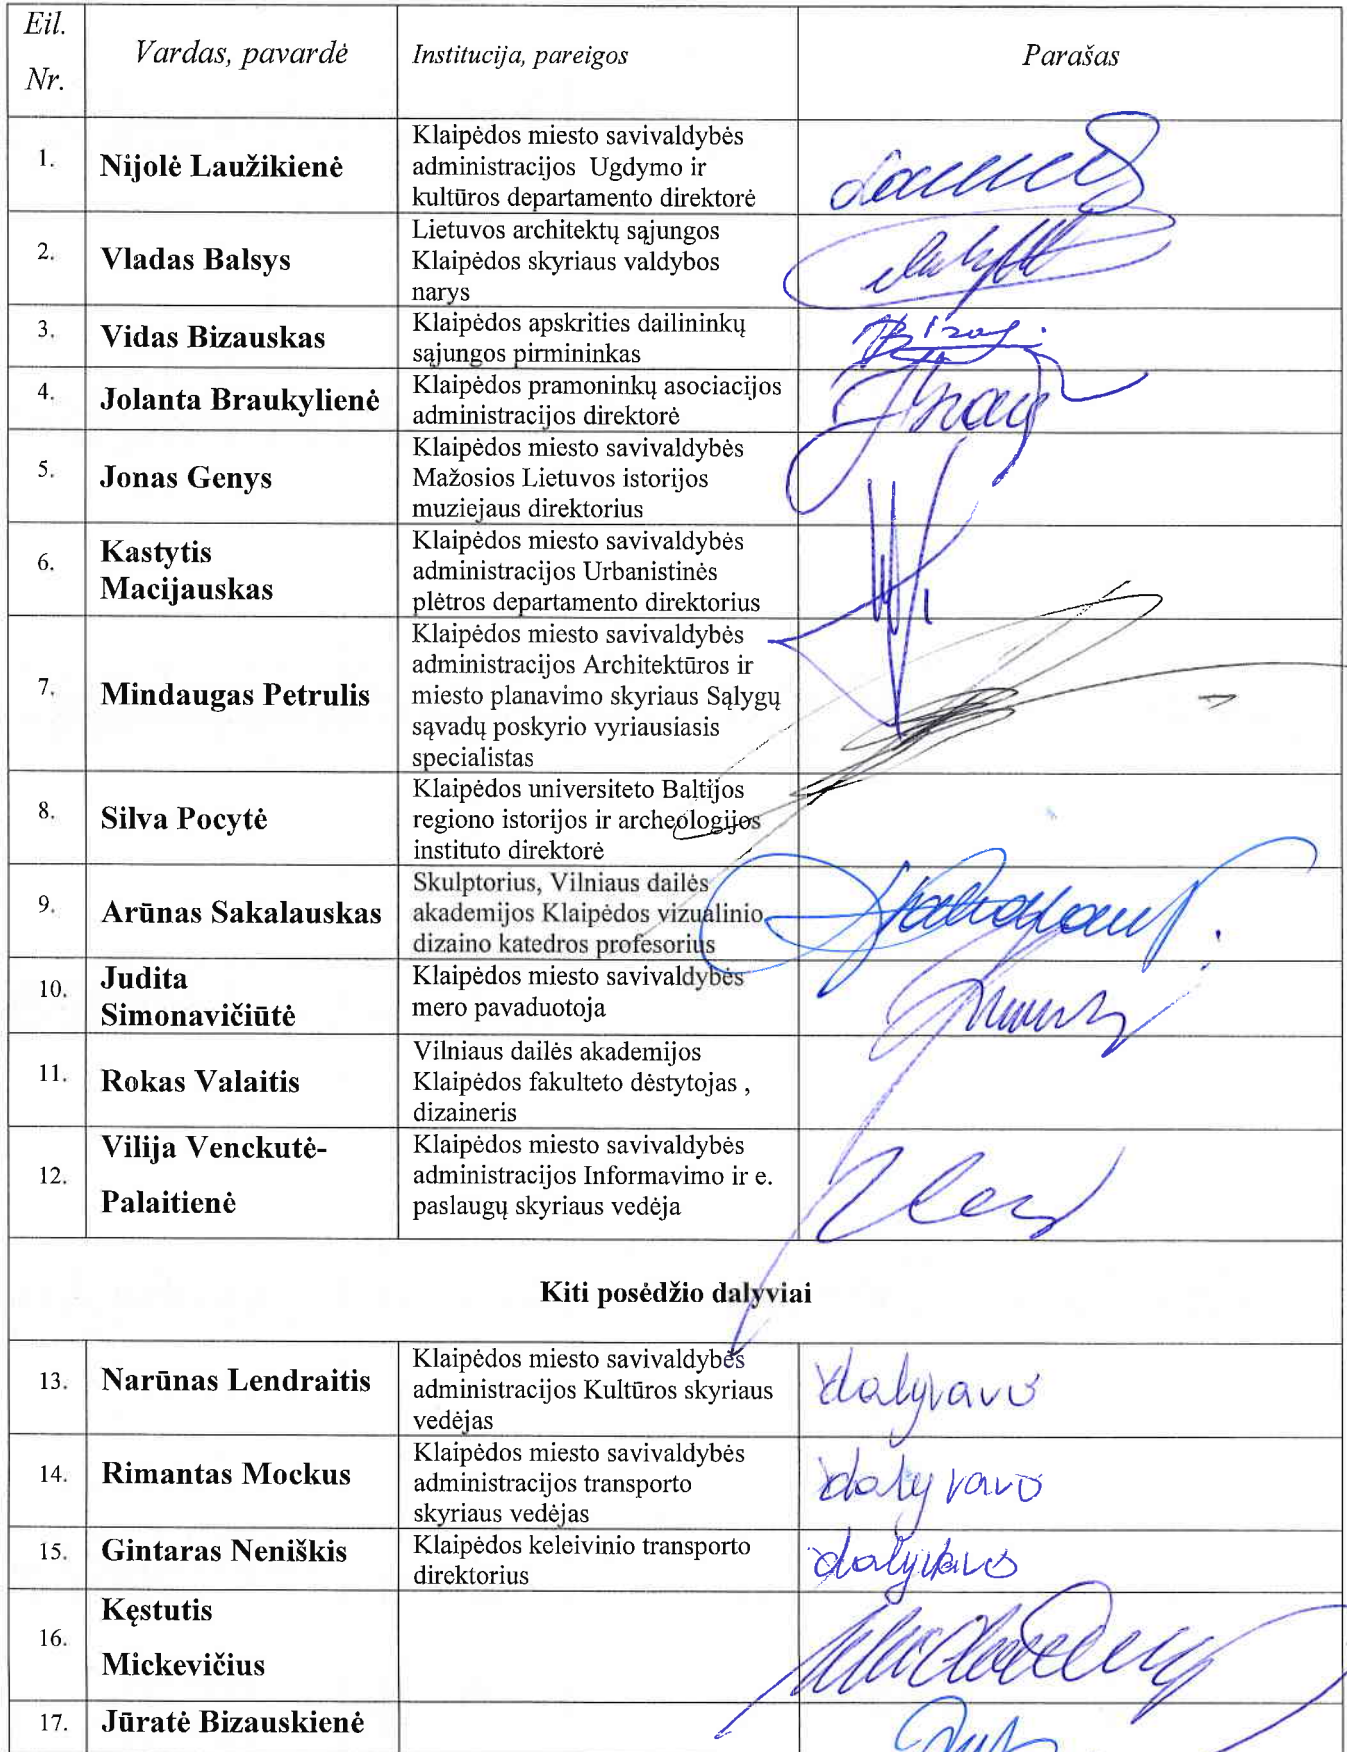 Eil. Nr.
Vardas, pavardė
Institucija, pareigos
Parašas
1.
Nijolė Laužikienė
Klaipėdos miesto savivaldybės
administracijos Ugdymo ir
kultūros departamento direktorė
2.
Vladas Balsys
Lietuvos architektų sąjungos
Klaipėdos skyriaus valdybos
narys
3.
Vidas Bizauskas
Klaipėdos apskrities dailininkų
sąjungos pirmininkas
4.
Jolanta Braukylienė
Klaipėdos pramoninkų asociacijos
administracijos direktorė
5.
Jonas Genys
Klaipėdos miesto savivaldybės
Mažosios Lietuvos istorijos
muziejaus direktorius
6.
Kastytis
Macijauskas
Klaipėdos miesto savivaldybės
administracijos Urbanistinės
plėtros departamento direktorius
7.
Mindaugas Petrulis
Klaipėdos miesto savivaldybės
administracijos Architektūros ir
miesto planavimo skyriaus Sąlygų
sąvadų poskyrio vyriausiasis
specialistas
8.
Silva Pocytė
Klaipėdos universiteto Baltijos
regiono istorijos ir archeologijos
instituto direktorė
9.
Arūnas Sakalauskas
Skulptorius, Vilniaus dailės
akademijos Klaipėdos vizualinio
dizaino katedros profesorius
10.
Judita
Simonavičiūtė
Klaipėdos miesto savivaldybės
mero pavaduotoja
11.
Rokas Valaitis
Vilniaus dailės akademijos
Klaipėdos fakulteto dėstytojas ,
dizaineris
12.
Vilija Venckutė-
Palaitienė
Klaipėdos miesto savivaldybės
administracijos Informavimo ir e.
paslaugų skyriaus vedėja
Kiti posėdžio dalyviai
13.
Narūnas Lendraitis
Klaipėdos miesto savivaldybės
administracijos Kultūros skyriaus
vedėjas
dalyvavo
14.
Rimantas Mockus
Klaipėdos miesto savivaldybės
administracijos transporto
skyriaus vedėjas
dalyvavo
15.
Gintaras Neniškis
Klaipėdos keleivinio transporto
direktorius
dalyvavo
16.
Kęstutis
Mickevičius
17.
Jūratė Bizauskienė